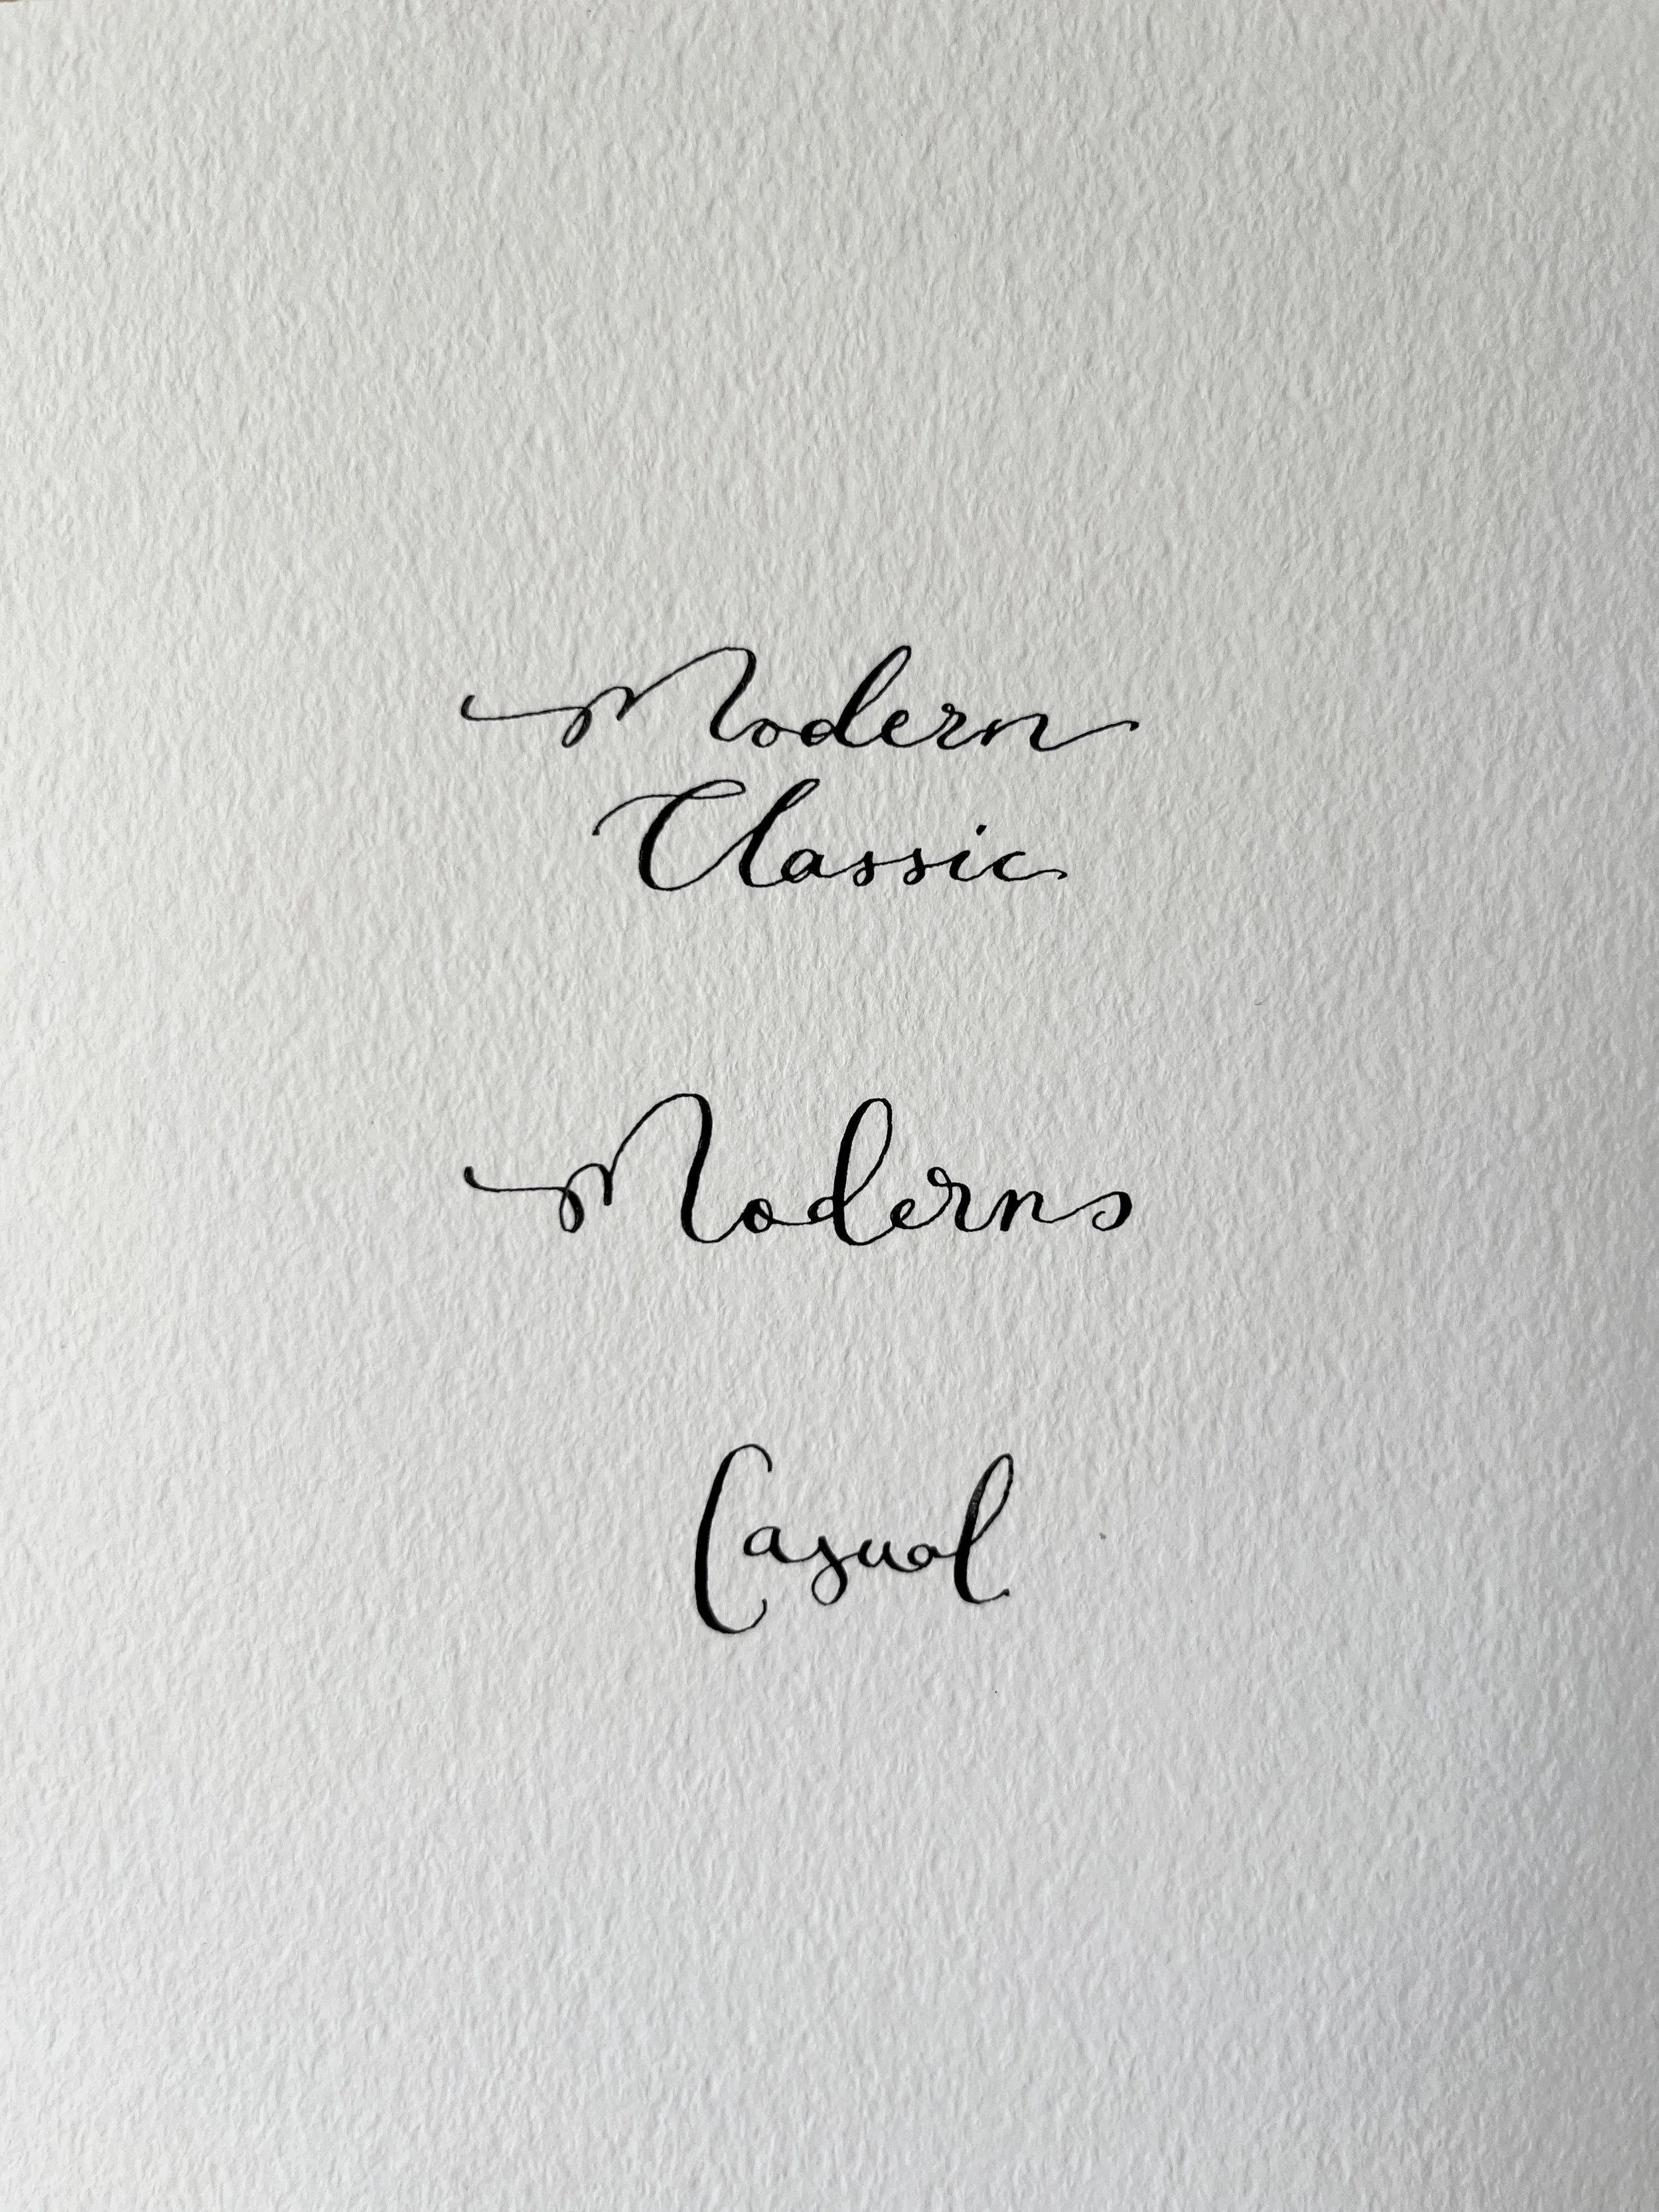 Modern
Classic
Moderns
Casual